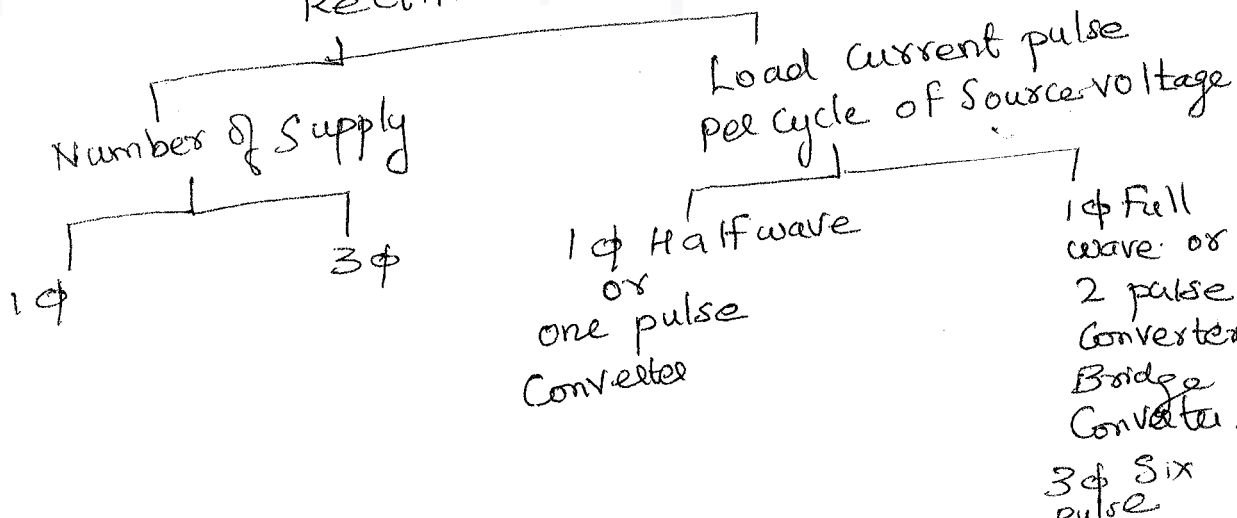 Number of Supply
1φ
3φ
Load Current pulse
per Cycle of Source voltage
1φ Halfwave
or
one pulse
Converter
1φ Full
wave or
2 pulse
Converter
Bridge
Converter.
3φ Six
pulse